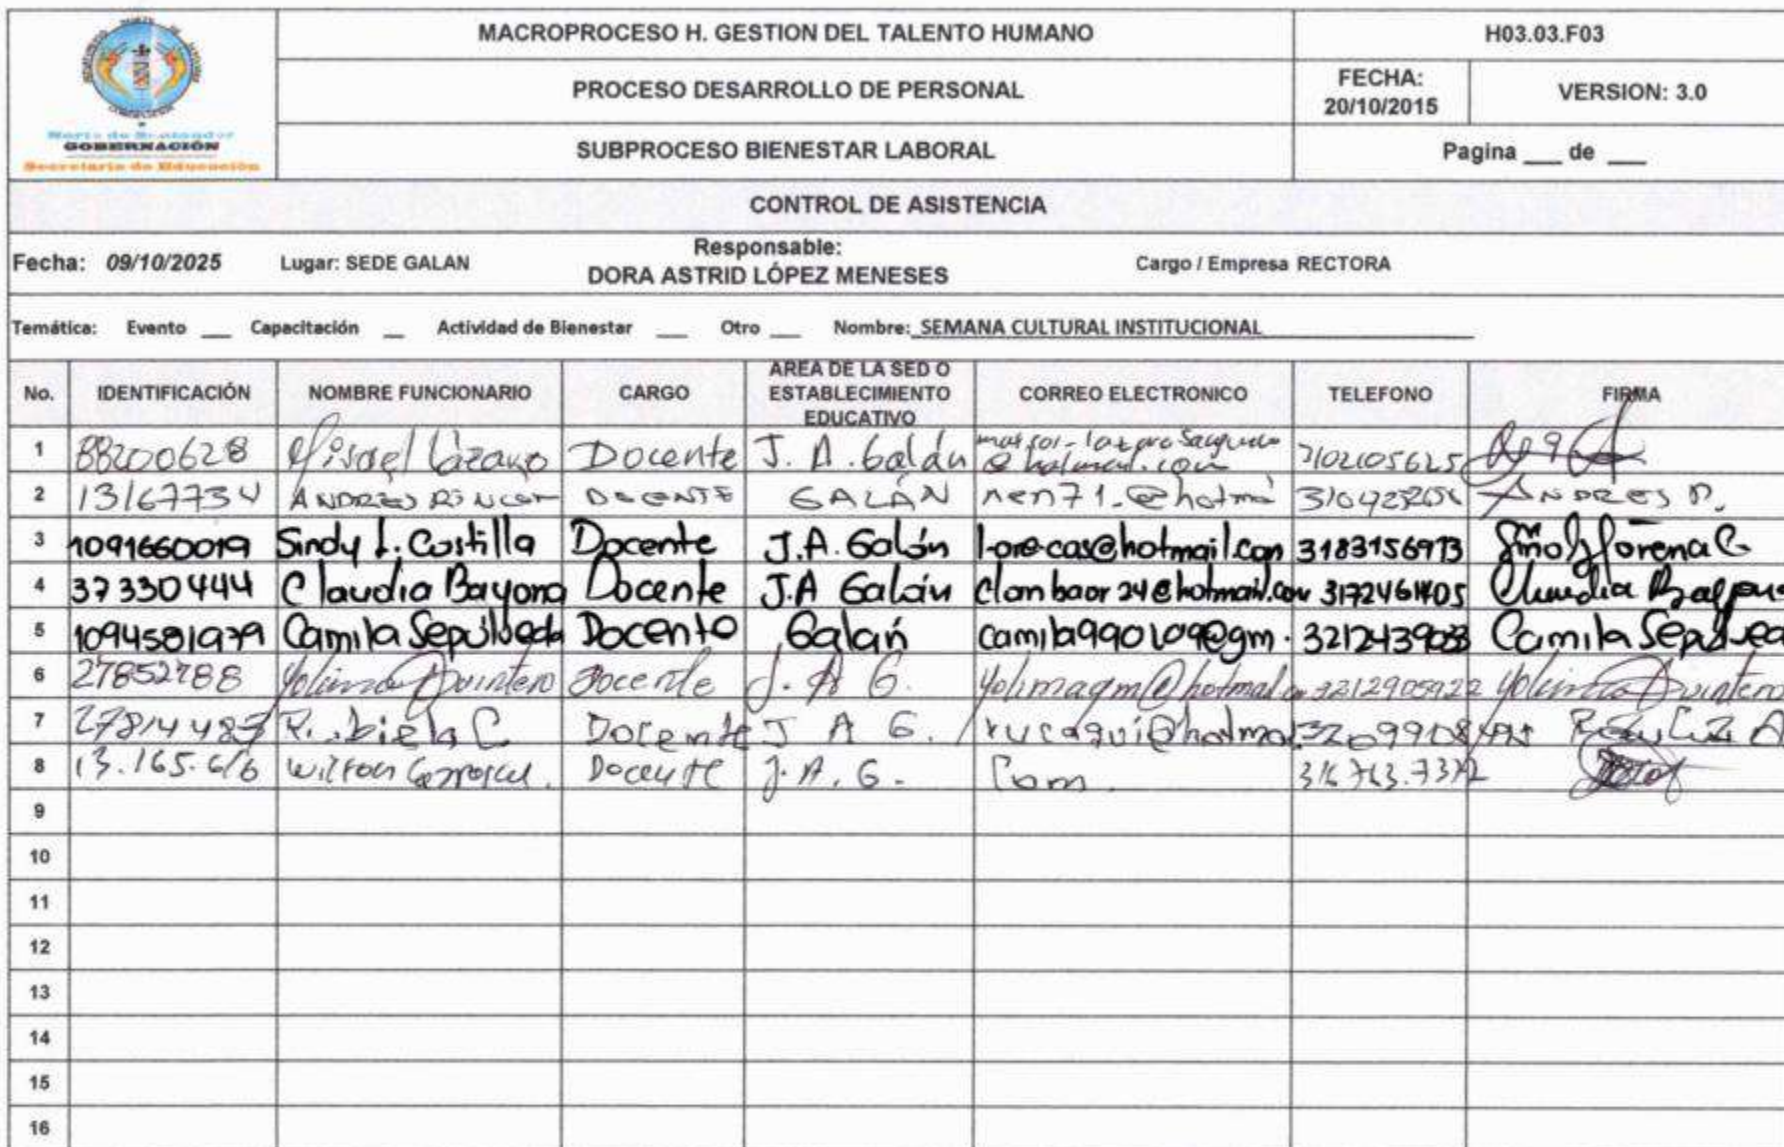 MACROPROCESO H. GESTION DEL TALENTO HUMANO
H03.03.F03
PROCESO DESARROLLO DE PERSONAL
FECHA: 20/10/2015
VERSION: 3.0
Norte de Santander
GOBERNACIÓN
Secretaría de Educación
SUBPROCESO BIENESTAR LABORAL
Pagina ___ de ___
CONTROL DE ASISTENCIA
Fecha: 09/10/2025 Lugar: SEDE GALAN Responsable: DORA ASTRID LÓPEZ MENESES Cargo / Empresa RECTORA
Temática: Evento ___ Capacitación __ Actividad de Bienestar ___ Otro ___ Nombre: SEMANA CULTURAL INSTITUCIONAL
No. IDENTIFICACIÓN NOMBRE FUNCIONARIO CARGO AREA DE LA SED O ESTABLECIMIENTO EDUCATIVO CORREO ELECTRONICO TELEFONO FIRMA
1 88200628 Docente J. A. Galán
2 13167734 ANDRES RINCON DOCENTE GALÁN nen71.@hotmai ANDRES R.
3 1091660019 Sindy L. Castilla Docente J.A. Galán l-ore-cas@hotmail.com 3183156973 Lorena C
4 37330444 Claudia Bayona Docente J.A Galán clanbaor24@hotmail.com 3172461405 Claudia Bayona
5 1094581979 Camila Sepúlveda Docente Galán camila990109@gm. Camila Sepulveda
6 27852788 Yolima Quintero Docente J. A G. yolimaqm@hotmail. 3212905922 Yolima Quintero
7 Rubiela C. Docente J A G. rucaqui@hotmai
8 13.165.616 Wilson Docente J. A. G. Com.
9
10
11
12
13
14
15
16